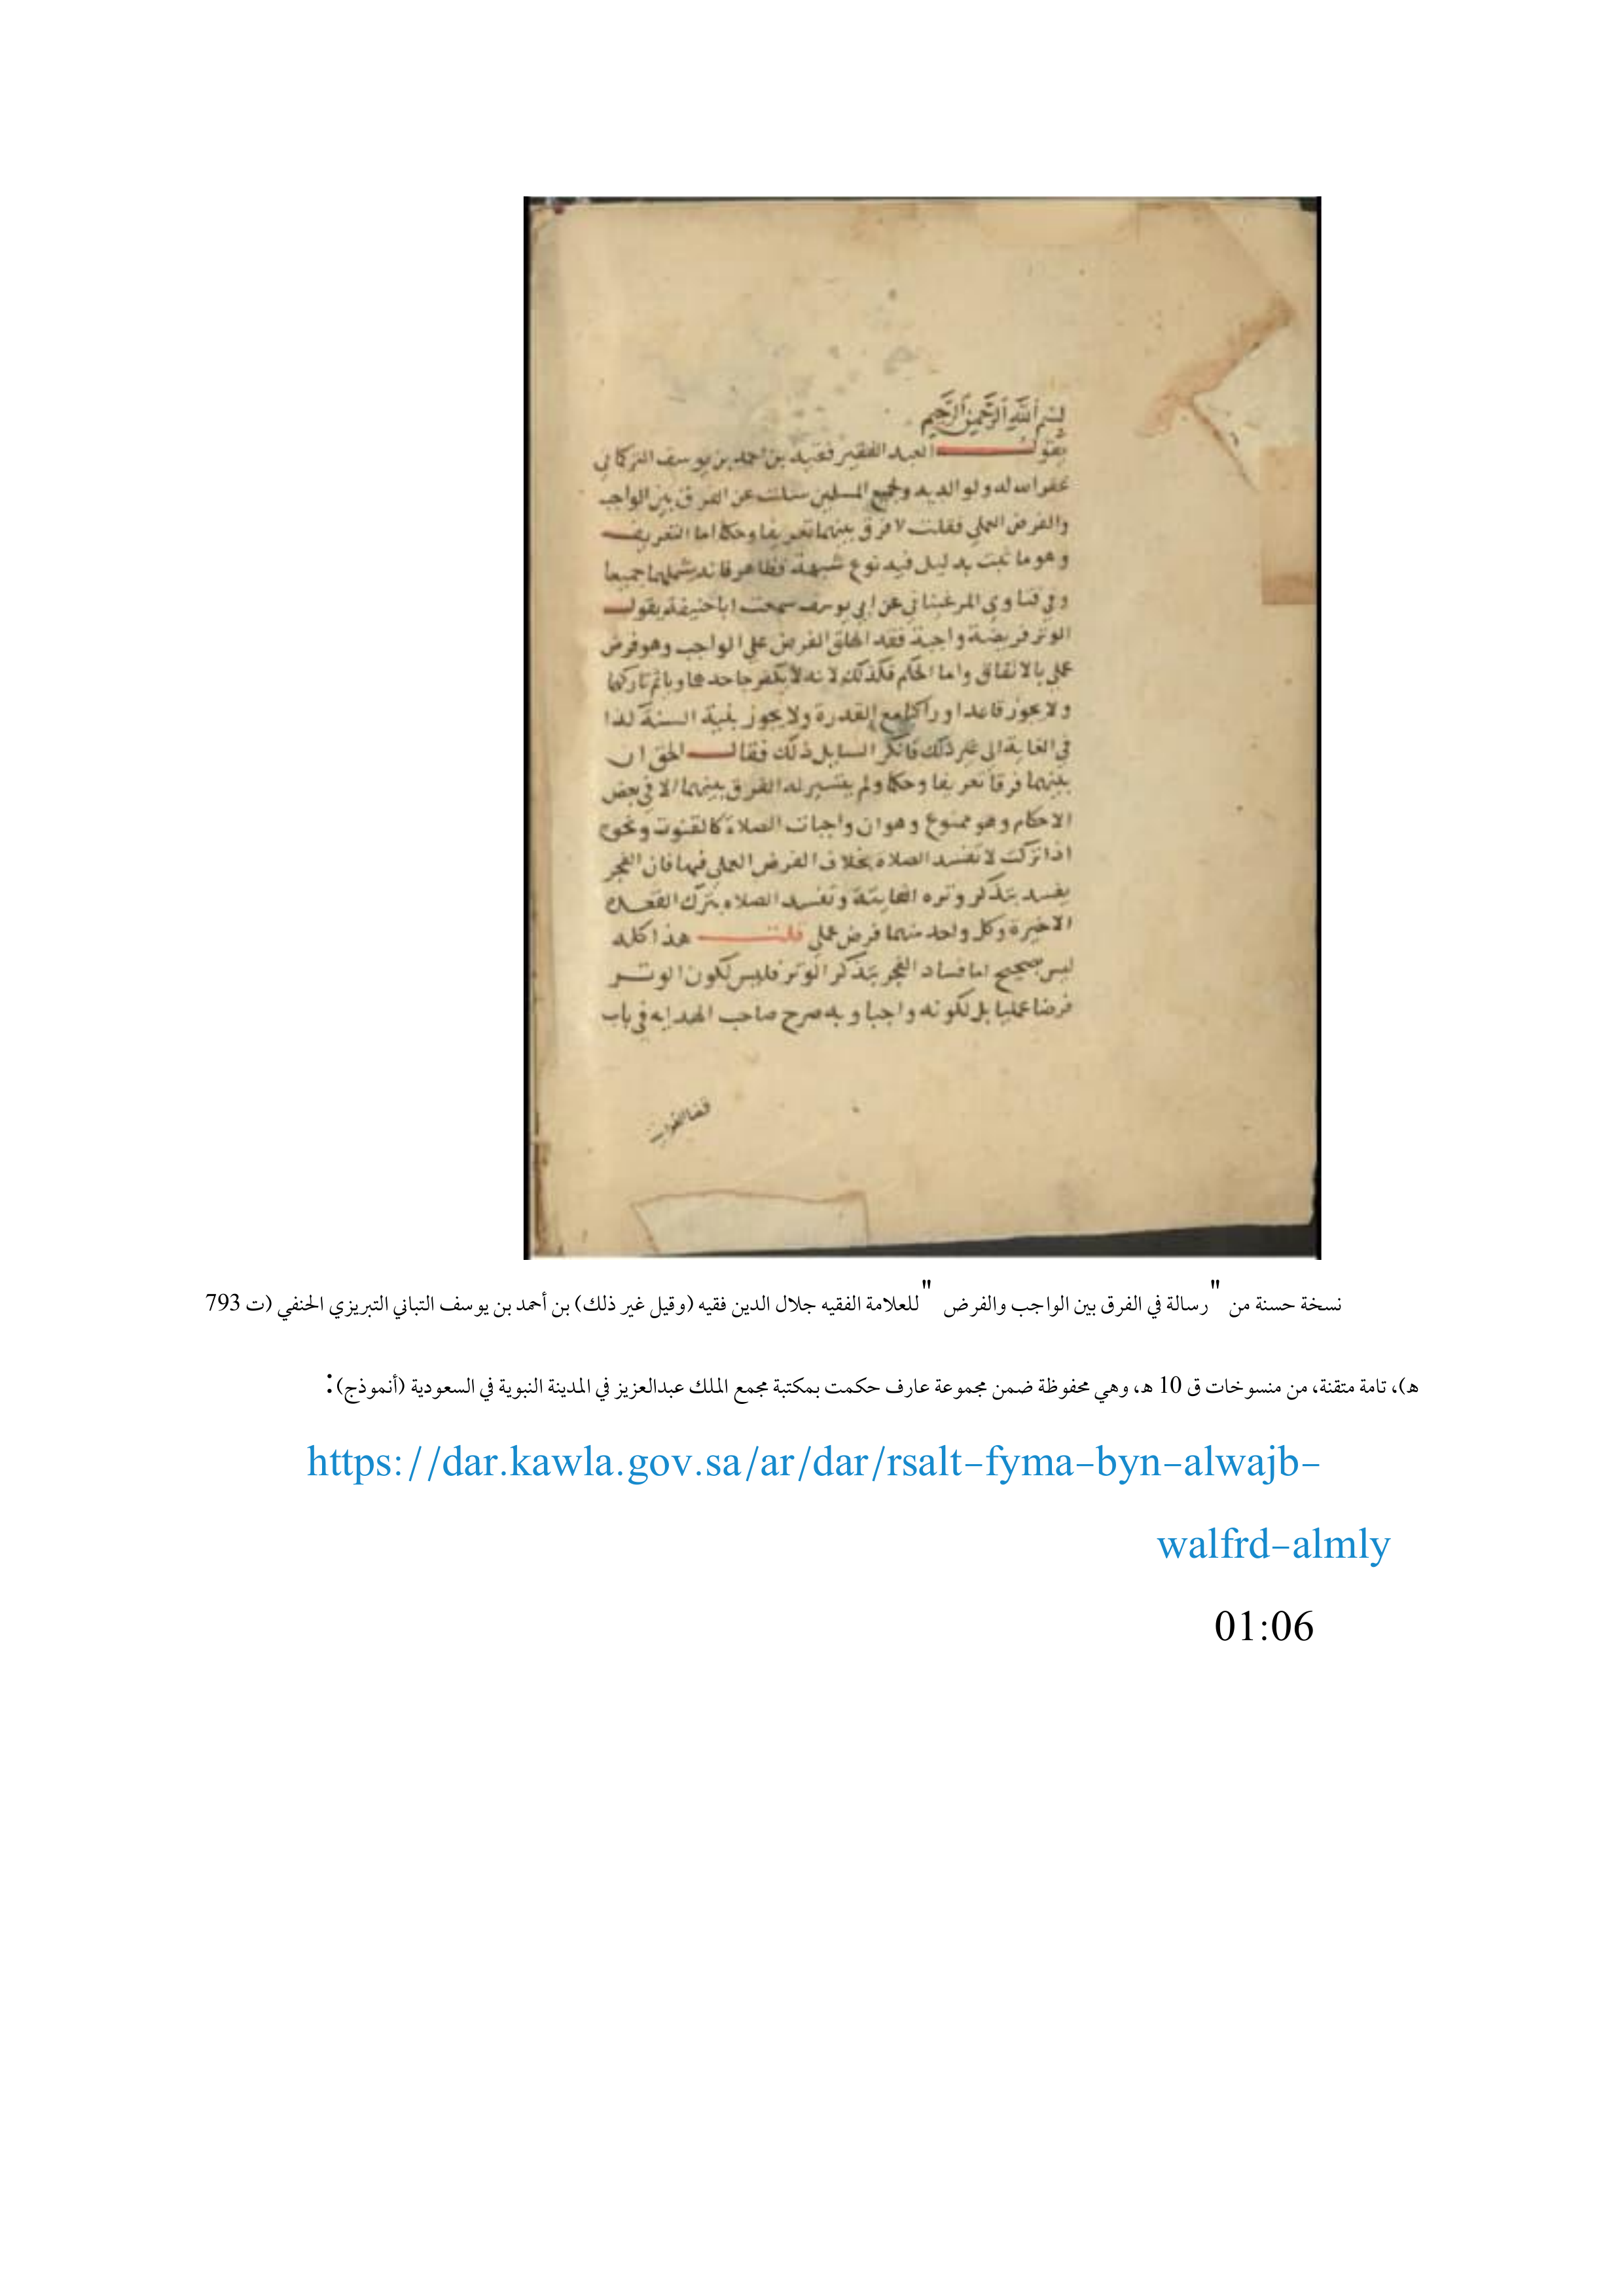 بسم الله الرحمن الرحيم
يقول العبد الفقير فقيه بن احمد بن يوسف التركماني
غفر الله له ولوالديه ولجميع المسلمين سئلت عن الفرق بين الواجب
والفرض العملي فقلت لا فرق بينهما تعريفا وحكما اما التعريف
وهو ما ثبت بدليل فيه نوع شبهة فظاهر فانه يشملهما جميعا
وفي فتاوي المرغيناني عن ابي يوسف سمعت ابا حنيفة يقول
الوتر فريضة واجبة فقد اطلق الفرض على الواجب وهو فرض
عملي بالاتفاق واما الحكم فكذلك لانه لا يكفر جاحدهما وياثم تاركهما
ولا يجوز قاعدا وراكبا مع القدرة ولا يجوز بنية السنة كذا
في الغاية الى غير ذلك فانكر السايل ذلك فقال الحق ان
بينهما فرقا تعريفا وحكما ولم يتيسر له الفرق بينهما الا في بعض
الاحكام وهو ممنوع وهو ان واجبات الصلاة كالقنوت ونحوه
اذا تركت لا تفسد الصلاه بخلاف الفرض العملي فيها فان الفجر
يفسد بتذكر وتره الفايتة وتفسد الصلاه بترك القعدة
الاخيرة وكل واحد منهما فرض عملي قلت هذا كله
ليس بصحيح اما فساد الفجر بتذكر الوتر فليس لكون الوتر
فرضا عمليا بل لكونه واجبا وبه صرح صاحب الهدايه في باب
قضا الفوايت
نسخة حسنة من "رسالة في الفرق بين الواجب والفرض" للعلامة الفقيه جلال الدين فقيه (وقيل غير ذلك) بن أحمد بن يوسف التباني التبريزي الحنفي (ت 793
هـ)، تامة متقنة، من منسوخات ق 10 هـ، وهي محفوظة ضمن مجموعة عارف حكمت بمكتبة مجمع الملك عبدالعزيز في المدينة النبوية في السعودية (أنموذج):
https://dar.kawla.gov.sa/ar/dar/rsalt-fyma-byn-alwajb-
walfrd-almly
01:06